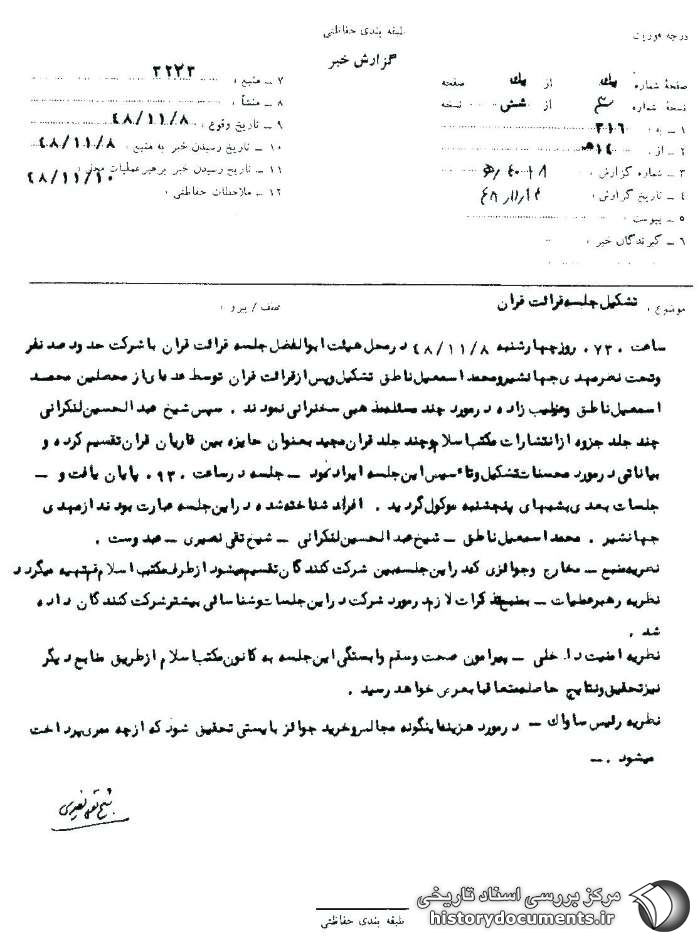 درجه فوریت
طبقه بندی حفاظتی
گزارش خبر
صفحهٔ شماره یك از یك صفحه
نسخهٔ شماره از شش نسخه
۱ ــ به : ۳۱۶
۲ ــ از : ۱۴ﻫ
۳ ــ شماره گزارش :
۴ ــ تاریخ گزارش :
۵ ــ پیوست :
۶ ــ گیرندگان خبر :
۷ ــ منبع : ۳۲۷۳
۸ ــ منشأ :
۹ ــ تاریخ وقوع : ۴۸/۱۱/۸
۱۰ ــ تاریخ رسیدن خبر به منبع : ۴۸/۱۱/۸
۱۱ ــ تاریخ رسیدن خبر برهبر عملیات محلی : ۴۸/۱۱/۱۰
۱۲ ــ ملاحظات حفاظتی :
موضوع : تشکیل جلسه قرائت قران
عطف / پیرو :
ساعت ۰۷۳۰ روز چهارشنبه ۴۸/۱۱/۸ در محل هیئت ابوالفضل جلسه قرائت قران با شرکت حدود صد نفر
وتحت نظر مهدی جهانشیر و محمد اسمعیل ناطق تشکیل و پس از قرائت قران توسط عده ای از محصلین محمد
اسمعیل ناطق و خطیب زاده در مورد چند مسئله مذهبی سخنرانی نمودند . سپس شیخ عبدالحسین لنکرانی
چند جلد جزوه از انتشارات مکتب اسلام و چند جلد قران مجید بعنوان جایزه بین قاریان قران تقسیم کرده و
بیاناتی در مورد محسنات تشکیل و تاسیس این جلسه ایراد نمود ــ جلسه در ساعت ۰۹۳۰ پایان یافت و ــ
جلسات بعدی بشبهای پنجشنبه موکول گردید . افراد شناخته شده در این جلسه عبارت بودند از مهدی
جهانشیر . محمد اسمعیل ناطق ــ شیخ عبدالحسین لنکرانی ــ شیخ تقی نصیری ــ عبدوست .
نظریه منبع ــ مخارج و جوائزی که در این جلسه بین شرکت کنندگان تقسیم میشود از طرف مکتب اسلام قم تهیه میگردد
نظریه رهبر عملیات ــ بمنبع تذکرات لازم در مورد شرکت در این جلسات و شناسائی بیشتر شرکت کنندگان داده
شد .
نظریه امنیت داخلی ــ پیرامون صحت وسقم وابستگی این جلسه به کانون مکتب اسلام از طریق منابع دیگر
نیز تحقیق و نتایج حاصله متعاقبا بعرض خواهد رسید .
نظریه رئیس ساواك ــ در مورد هزینه اینگونه مجالس و خرید جوائز بایستی تحقیق شود که از چه ممری پرداخت
میشود . ــ
شیخ تقی نصیری
طبقه بندی حفاظتی
مرکز بررسی اسناد تاریخی
historydocuments.ir